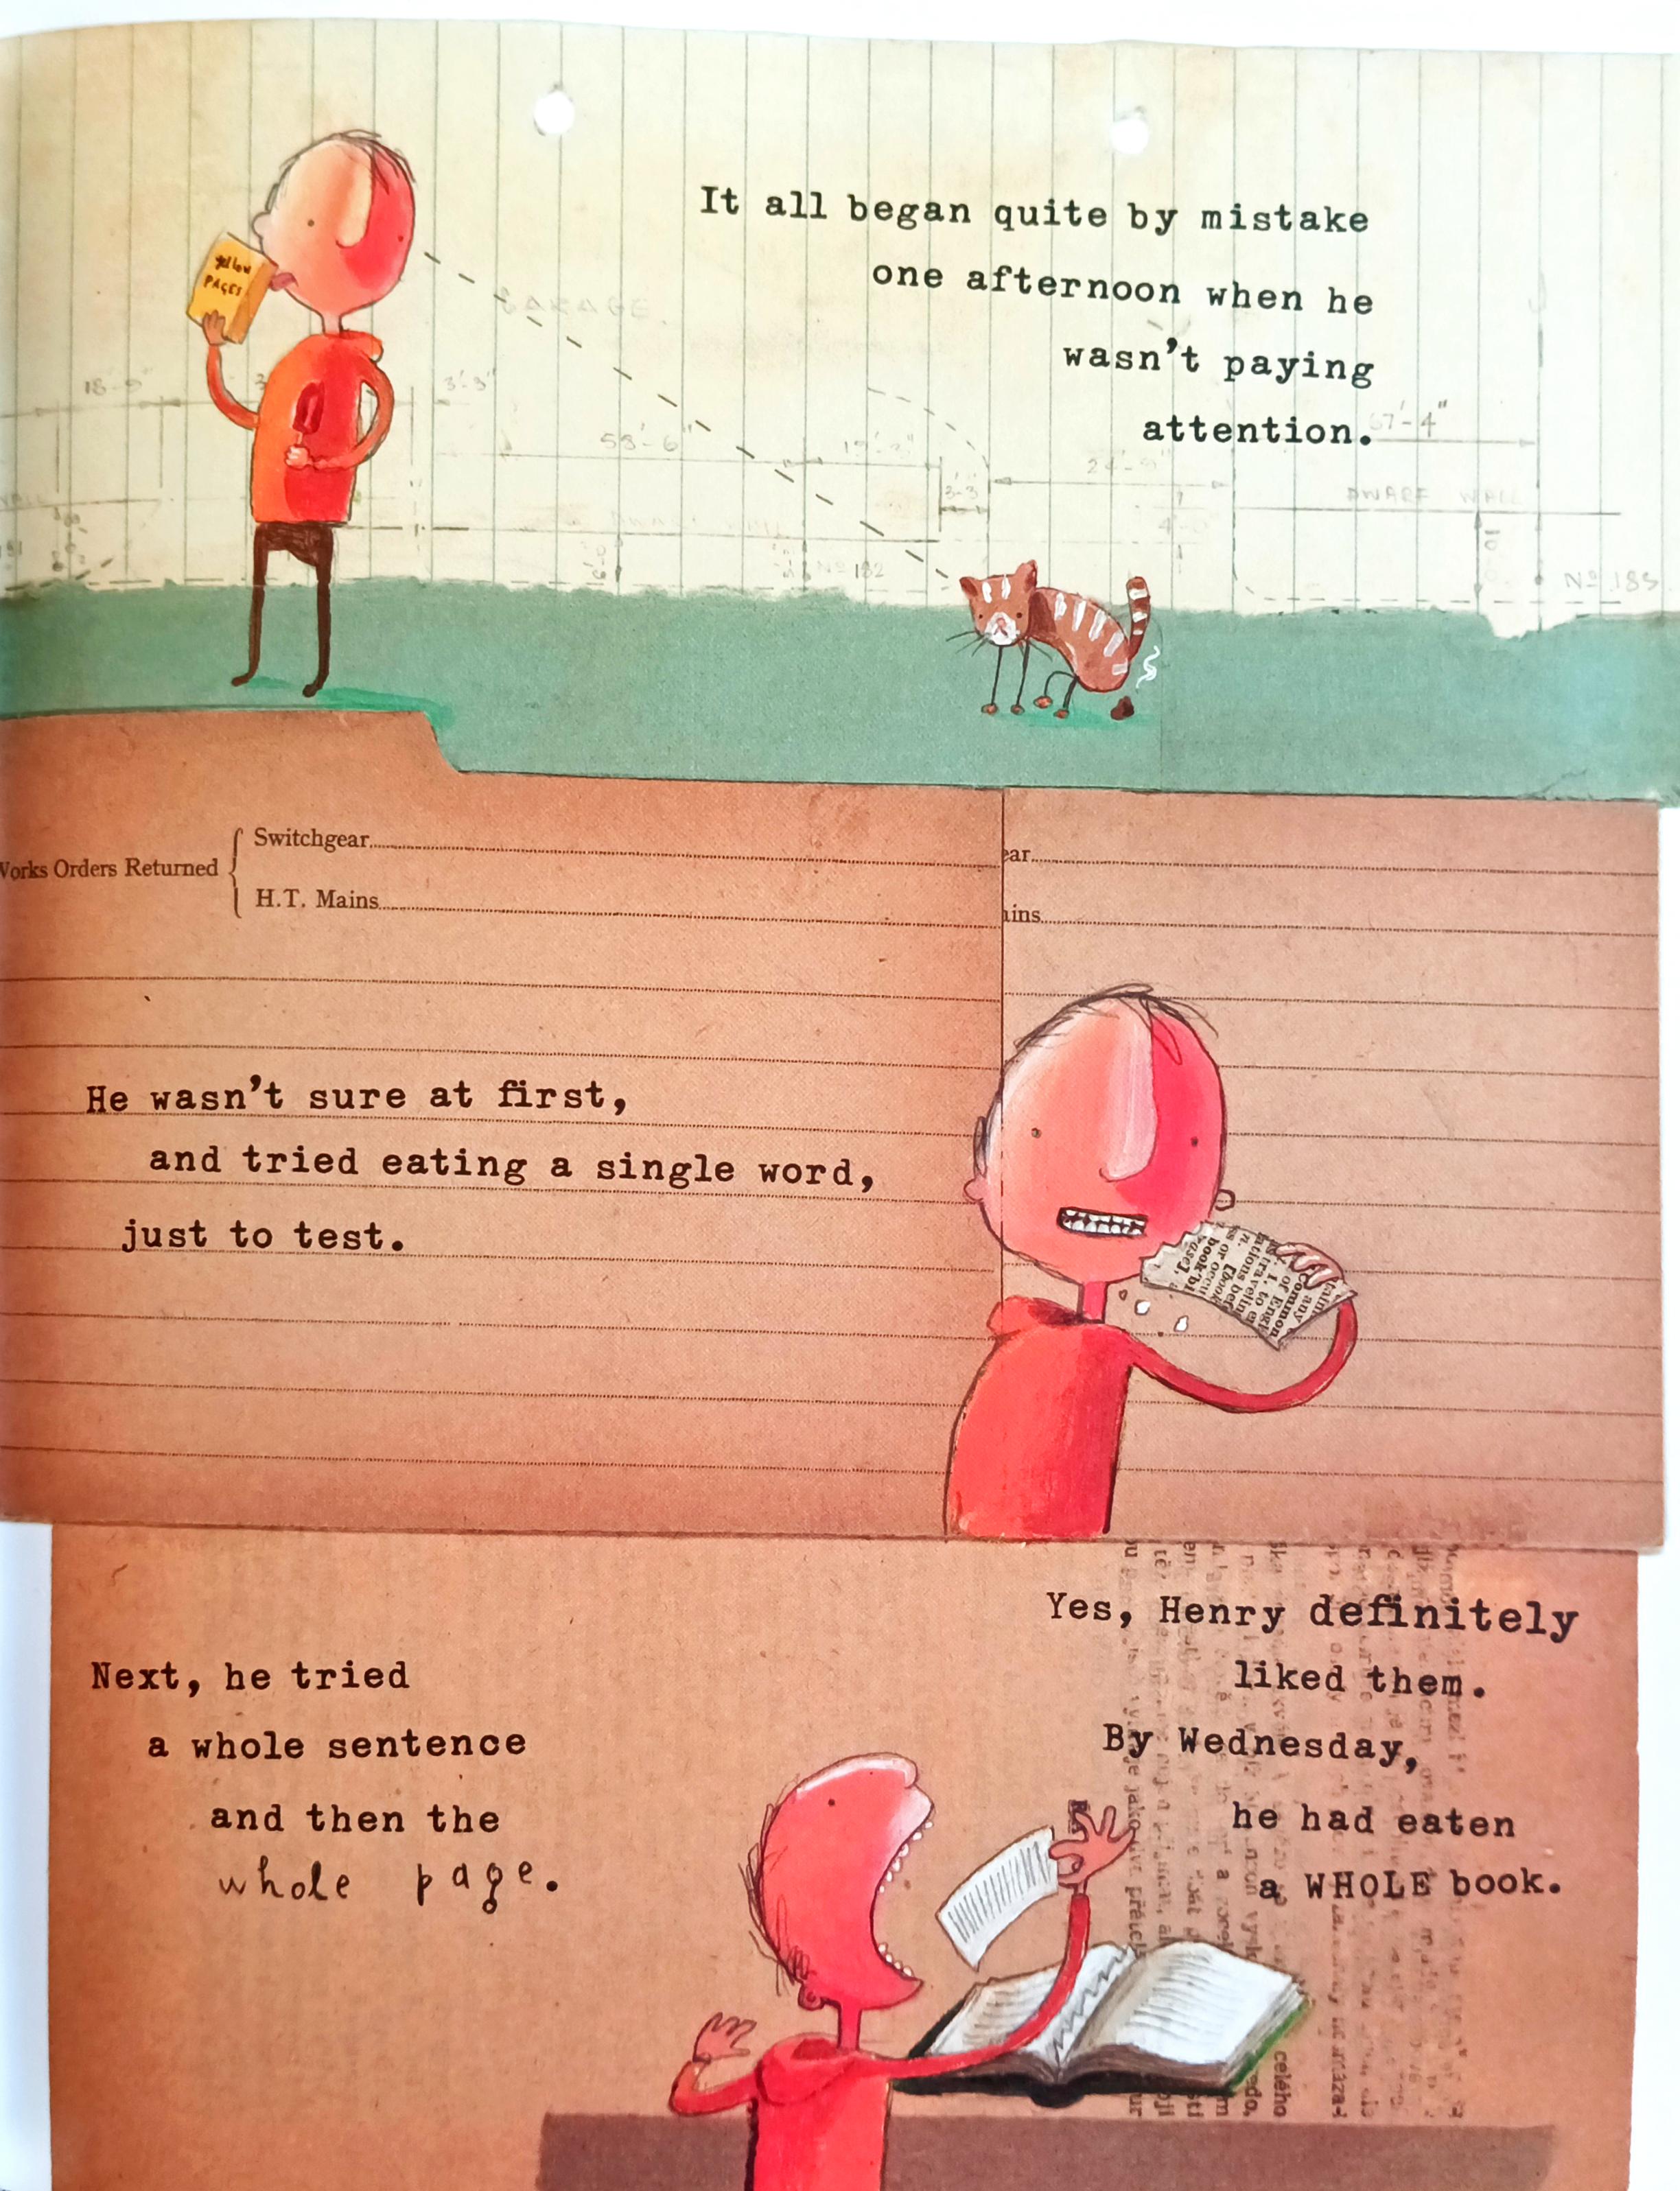 yellow
PAGES
It all began quite by mistake
one afternoon when he
wasn't paying
attention.
GARAGE.
18'-9"
3'-3"
58'-6"
67'-4"
3'-3"
DWARF WALL
Nº 182
Nº 185
Works Orders Returned
Switchgear
H.T. Mains
ear
ains
He wasn't sure at first,
and tried eating a single word,
just to test.
book
of Engl
to
any
common
Next, he tried
a whole sentence
and then the
whole page.
Yes, Henry definitely
liked them.
By Wednesday,
he had eaten
a WHOLE book.
celého